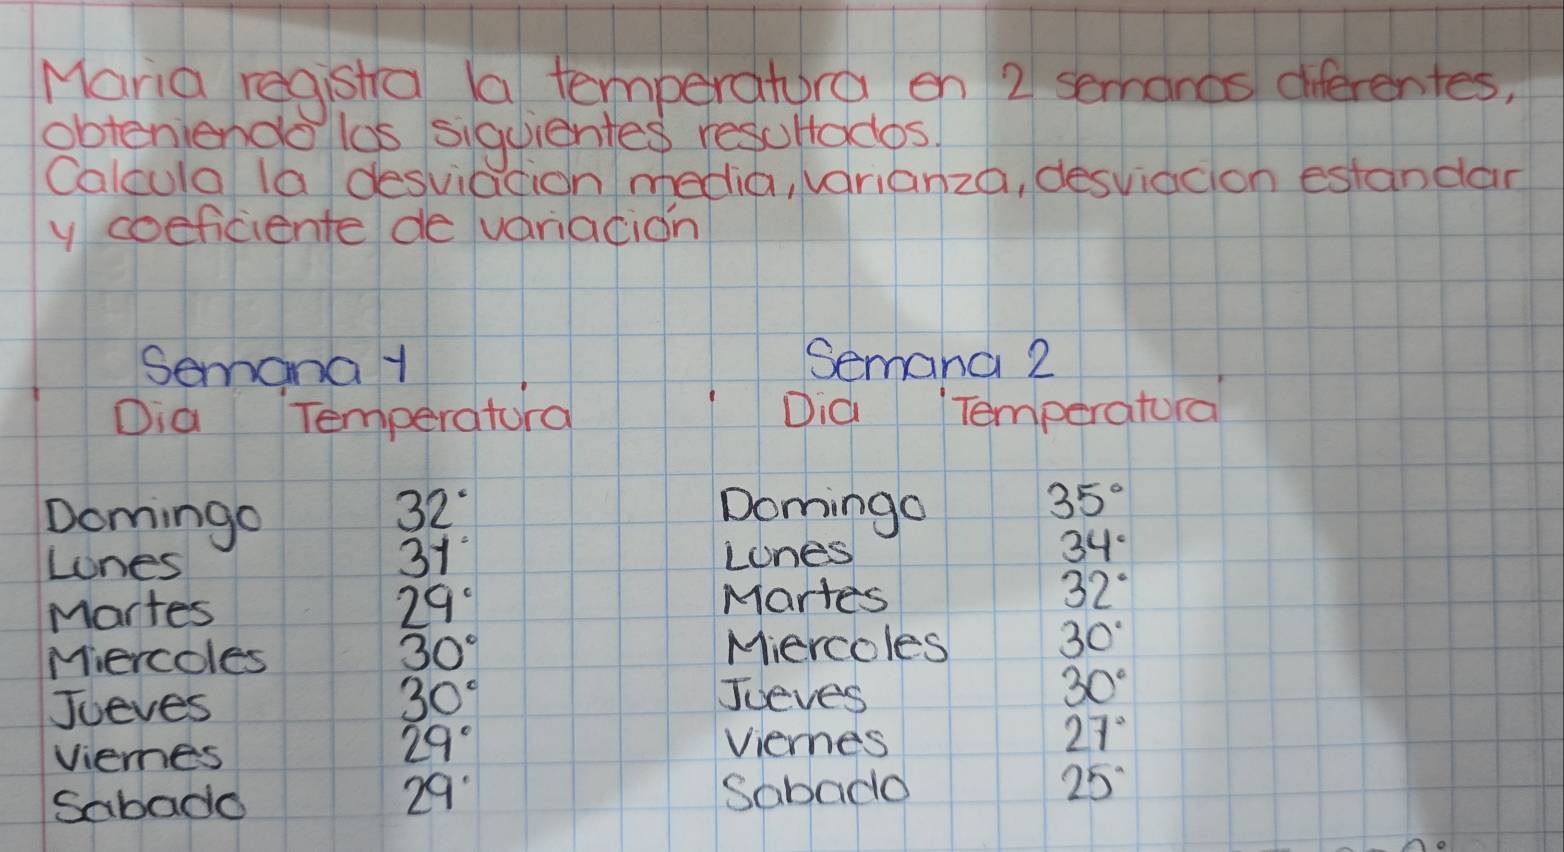 Maria registra la temperatura en 2 semanas diferentes,
obteniendo los siguientes resultados.
Calcula la desviación media, varianza, desviacion estandar
y coeficiente de variación
Semana 1 Semana 2
Dia Temperatura Dia Temperatura
Domingo 32° Domingo 35°
Lunes 31° Lunes 34°
Martes 29° Martes 32°
Miercoles 30° Miercoles 30°
Jueves 30° Jueves 30°
Viernes 29° Viernes 27°
Sabado 29° Sabado 25°